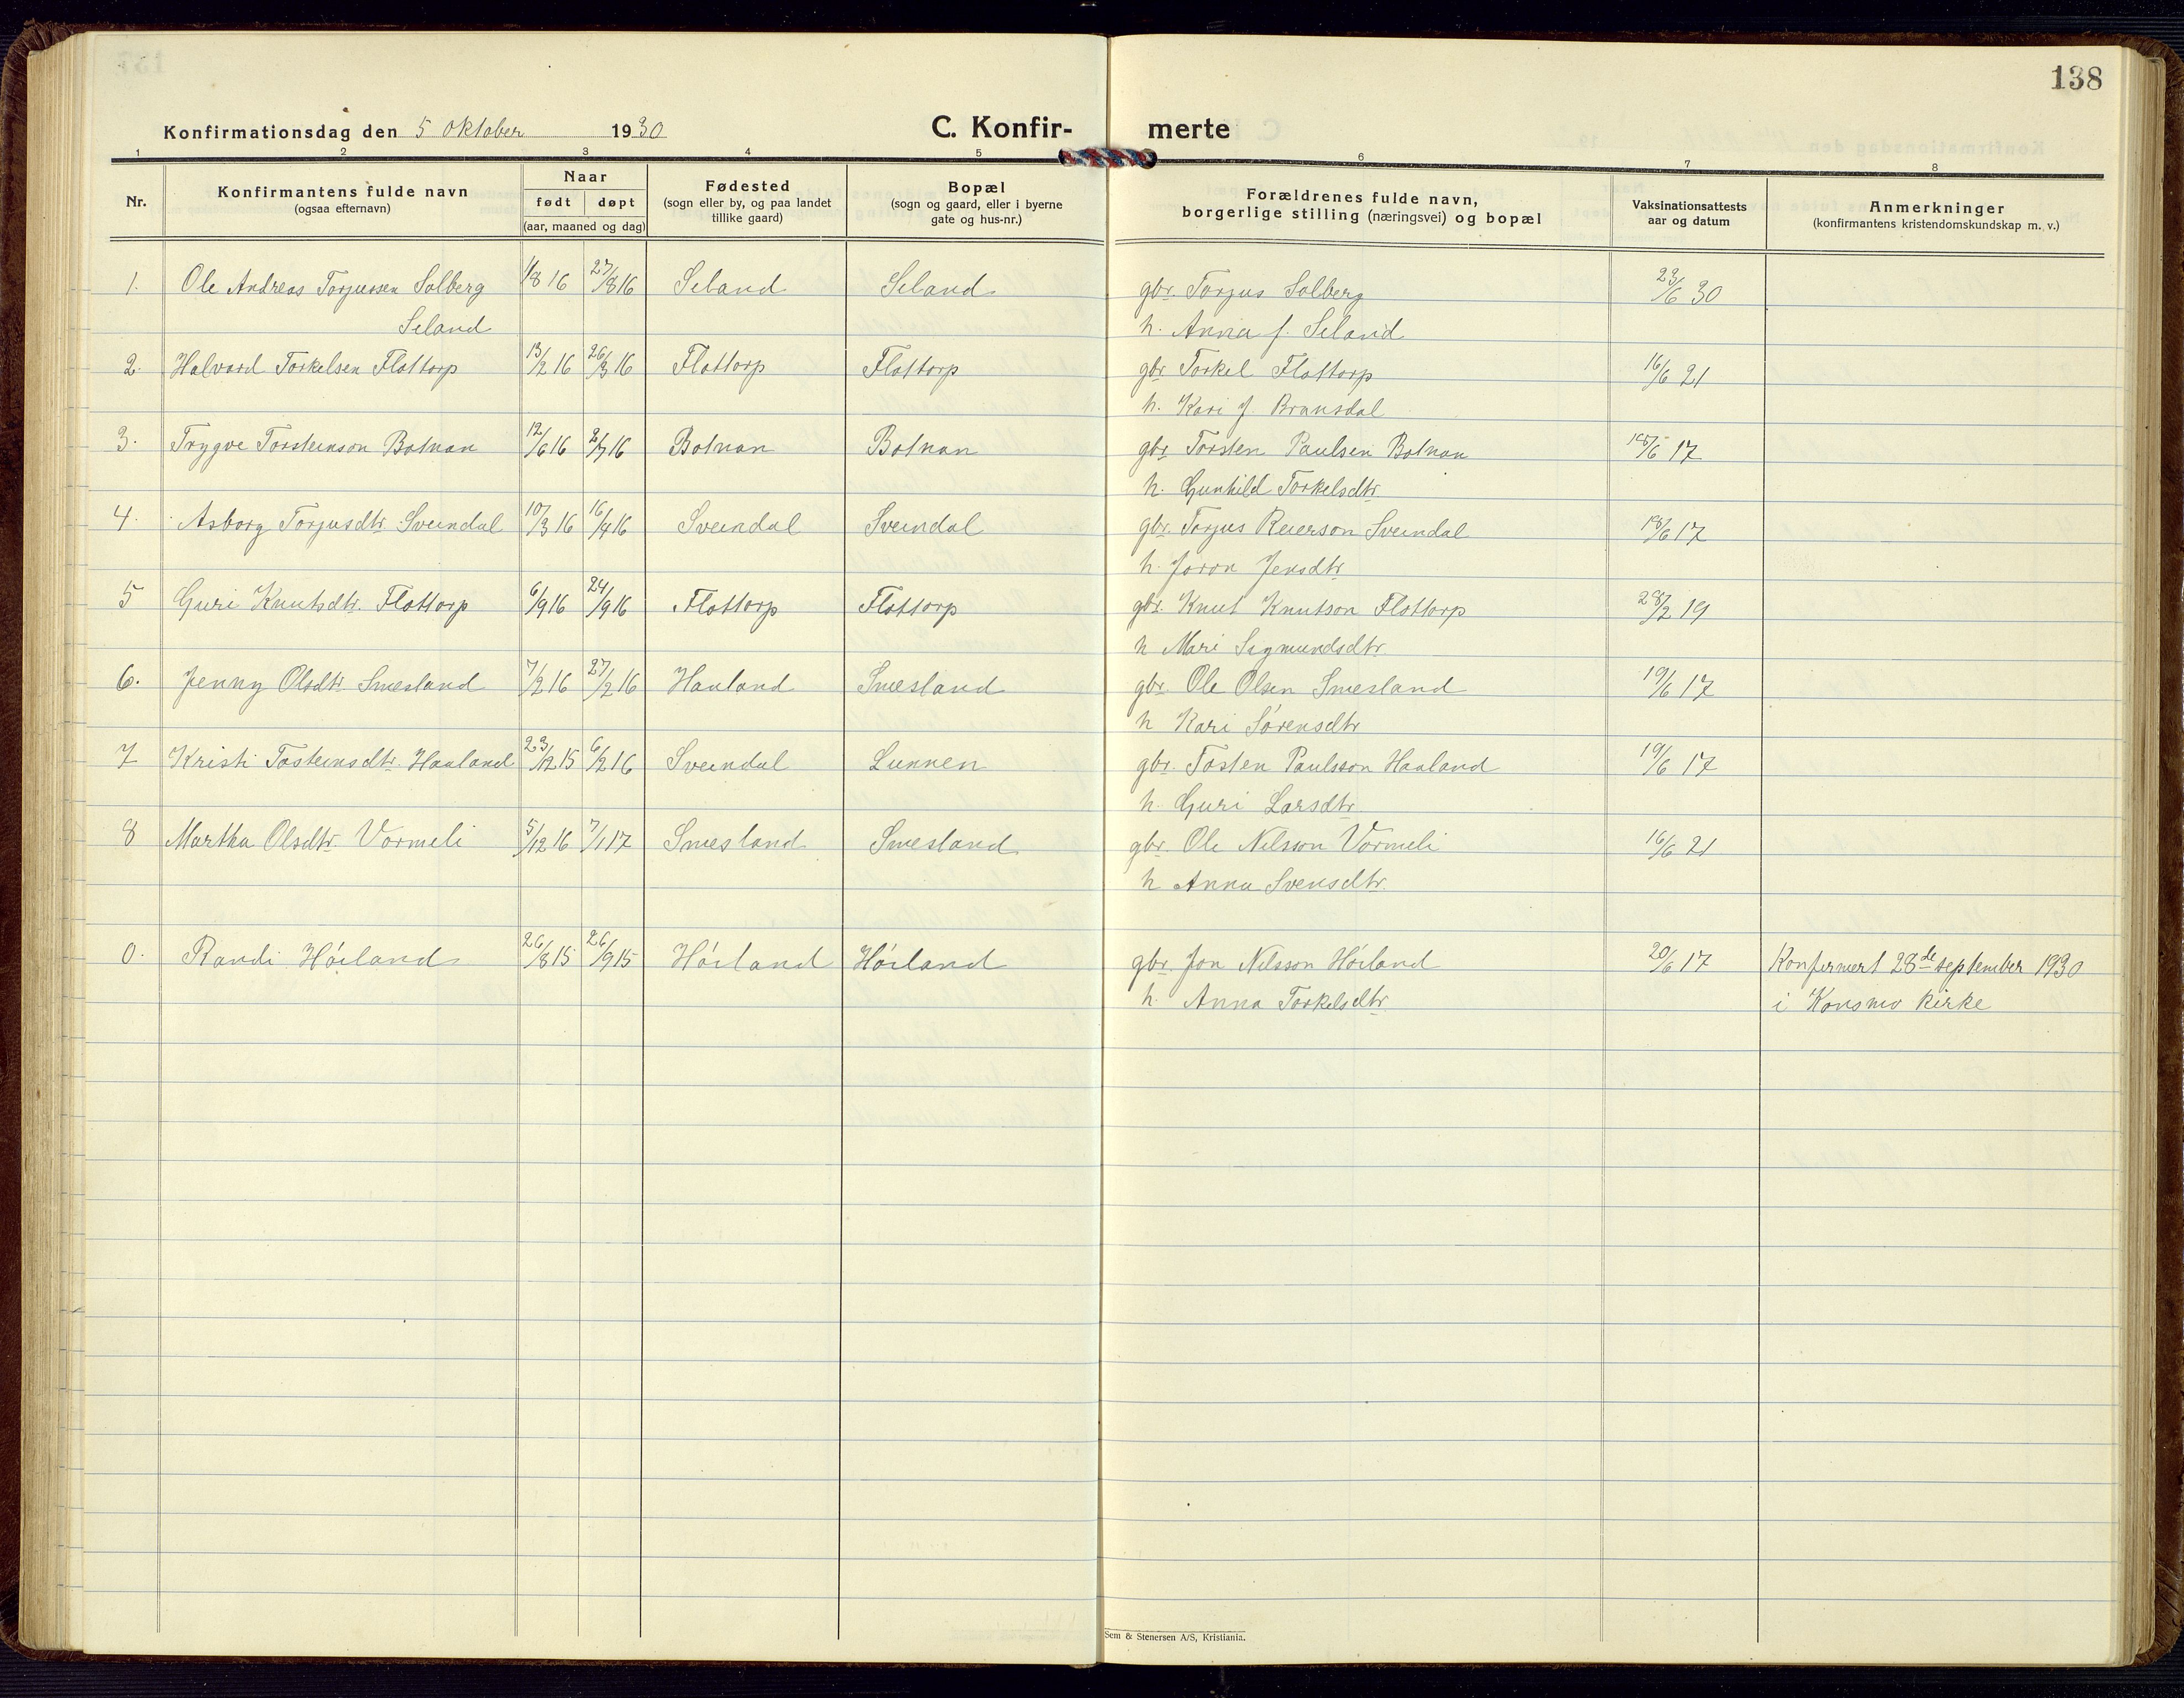 138
Konfirmationsdag den 5 oktober 1930 C. Konfir- merte
1 2 3 4 5 6 7 8
Nr. Konfirmantens fulde navn (ogsaa efternavn) Naar født døpt (aar, maaned og dag) Fødested (sogn eller by, og paa landet tillike gaard) Bopæl (sogn og gaard, eller i byerne gate og hus-nr.) Forældrenes fulde navn, borgerlige stilling (næringsvei) og bopæl Vaksinationsattests aar og datum Anmerkninger (konfirmantens kristendomskundskap m. v.)
1. Ole Andreas Torjussen Solberg 1/8 16 27/8 16 Seland Seland gbr. Torjus Solberg 23/6 30
Seland h. Anna f. Seland
2. Halvard Torkelsen Flottorp 13/2 16 26/3 16 Flottorp Flottorp gbr Torkel Flottorp 16/6 21
h. Kari f. Brunsdal
3. Trygve Torsteinson Botnan 12/6 16 2/7 16 Botnan Botnan gbr Torsten Paulsen Botnan 18/6 17
h. Gunhild Torkelsdtr
4. Asborg Torjusdtr Sveindal 10/3 16 16/4 16 Sveindal Sveindal gbr. Torjus Reierson Sveindal 18/6 17
h. Joron Jensdtr
5 Guri Knutsdtr. Flottorp 6/9 16 24/9 16 Flottorp Flottorp gbr. Knut Knutson Flottorp 28/2 19
h Mari Sigmundsdtr.
6. Jenny Olsdtr Smesland 7/2 16 27/2 16 Hauland Smesland gbr. Ole Olsen Smesland 19/6 17
h Kari Sørensdtr
7 Kristi Tosteinsdtr. Hauland 23/12 15 6/2 16 Sveindal Lunnen gbr. Tosten Paulsson Hauland 19/6 17
h. Guri Larsdtr
8 Martha Olsdtr. Vormeli 5/12 16 7/1 17 Smesland Smesland gbr. Ole Nilsson Vormeli 16/6 21
h Anna Svensdtr.
0. Randi Høiland 26/8 15 26/9 15 Høiland Høiland gbr. Jon Nilsson Høiland 20/6 17 Konfirmert 28de september 1930
h. Anna Torkelsdtr. i Konsmo kirke
Sem & Stenersen A/S, Kristiania.